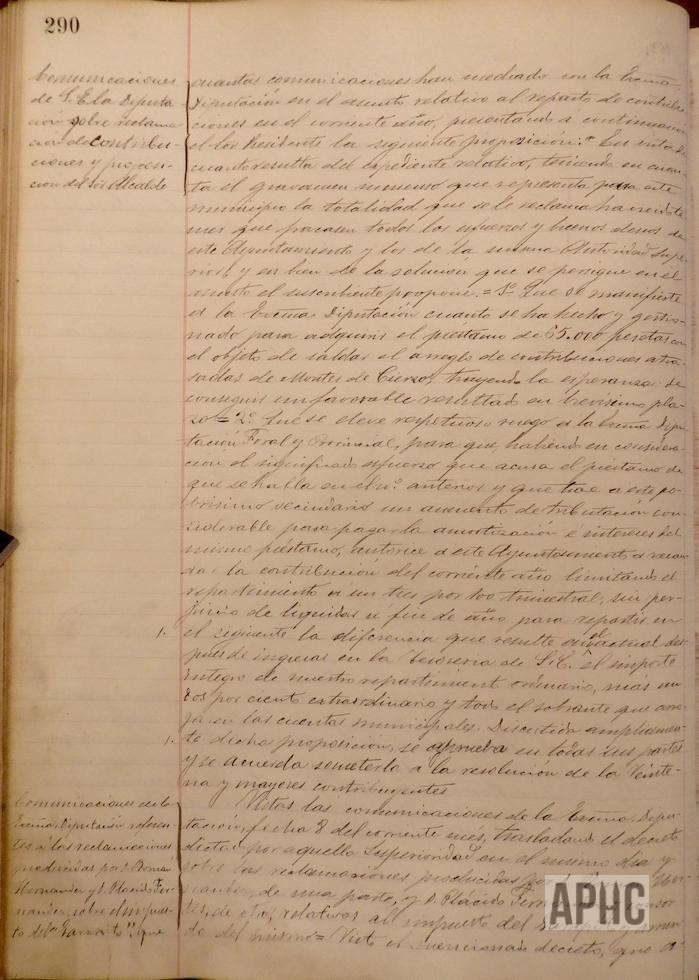 290
Comunicaciones
de S. E. la Diputa
cion sobre reclama
cion de contribu-
ciones y proposi-
cion del Sor Alcalde
cuantas comunicaciones han mediado con la Excma
Diputación en el asunto relativo al reparto de contribu-
ciones en el corriente año, presentando a continuacion
el Sor Presidente la siguiente proposición: " En vista de
cuanto resulta del expediente relativo, teniendo en cuen-
ta el gravamen inmenso que representa para este
municipio la totalidad que se le reclama
que fracasen todos los esfuerzos y buenos deseos de
este Ayuntamiento y los de la misma Autoridad Supe-
rior, y en bien de la solucion que se persigue en el
asunto el suscribiente propone = 1º Que se manifieste
a la Excma Diputación cuanto se ha hecho y gestio-
nado para adquirir el préstamo de 65.000 pesetas con
el objeto de saldar el arreglo de contribuciones atra-
sadas de Montes de Cierzo, la esperanza de
conseguir un favorable resultado en brevisimo pla-
zo = 2º Que se eleve respetuoso ruego a la Excma Dipu-
tación Foral y Provincial, para que, habiendo en considera-
cion el significado esfuerzo que acusa el préstamo de
que se habla en el nº anterior y que trae a este po-
brisimo vecindario un aumento de tributación con-
siderable para pagar la amortización é intereses del
mismo préstamo, autorice a este Ayuntamiento a recau-
dar la contribución del corriente año limitando el
repartimiento a un tres por 100 trimestral, sin per-
juicio de liquidar á fin de año para repartir en
1. el siguiente la diferencia que resulte en el actual des-
pués de ingresar en la Tesoreria de S. E. el importe
integro de nuestro repartimiento ordinario, más un
dos por ciento extraordinario y todo el sobrante que arro-
jan las cuentas municipales. Discutida ampliamen-
1. te dicha proposición, se aprueba en todas sus partes
y se acuerda someterla a la resolución de la Veinte-
na y mayores contribuyentes
Comunicaciones de la
Excma Diputación referen-
tes á las reclamaciones
producidas por D. Román
Hernandez y D. Plácido Fer-
nandez, sobre el impues-
to del "Farurito", que
Vistas las comunicaciones de la Excma Dipu-
tación, fecha 8 del corriente mes, trasladando el decreto
dictado por aquella Superioridad en el mismo dia y
sobre las reclamaciones producidas por
de una parte, y D. Plácido
de otra, relativos al impuesto del
de del mismo = Visto el mencionado decreto, que
APHC